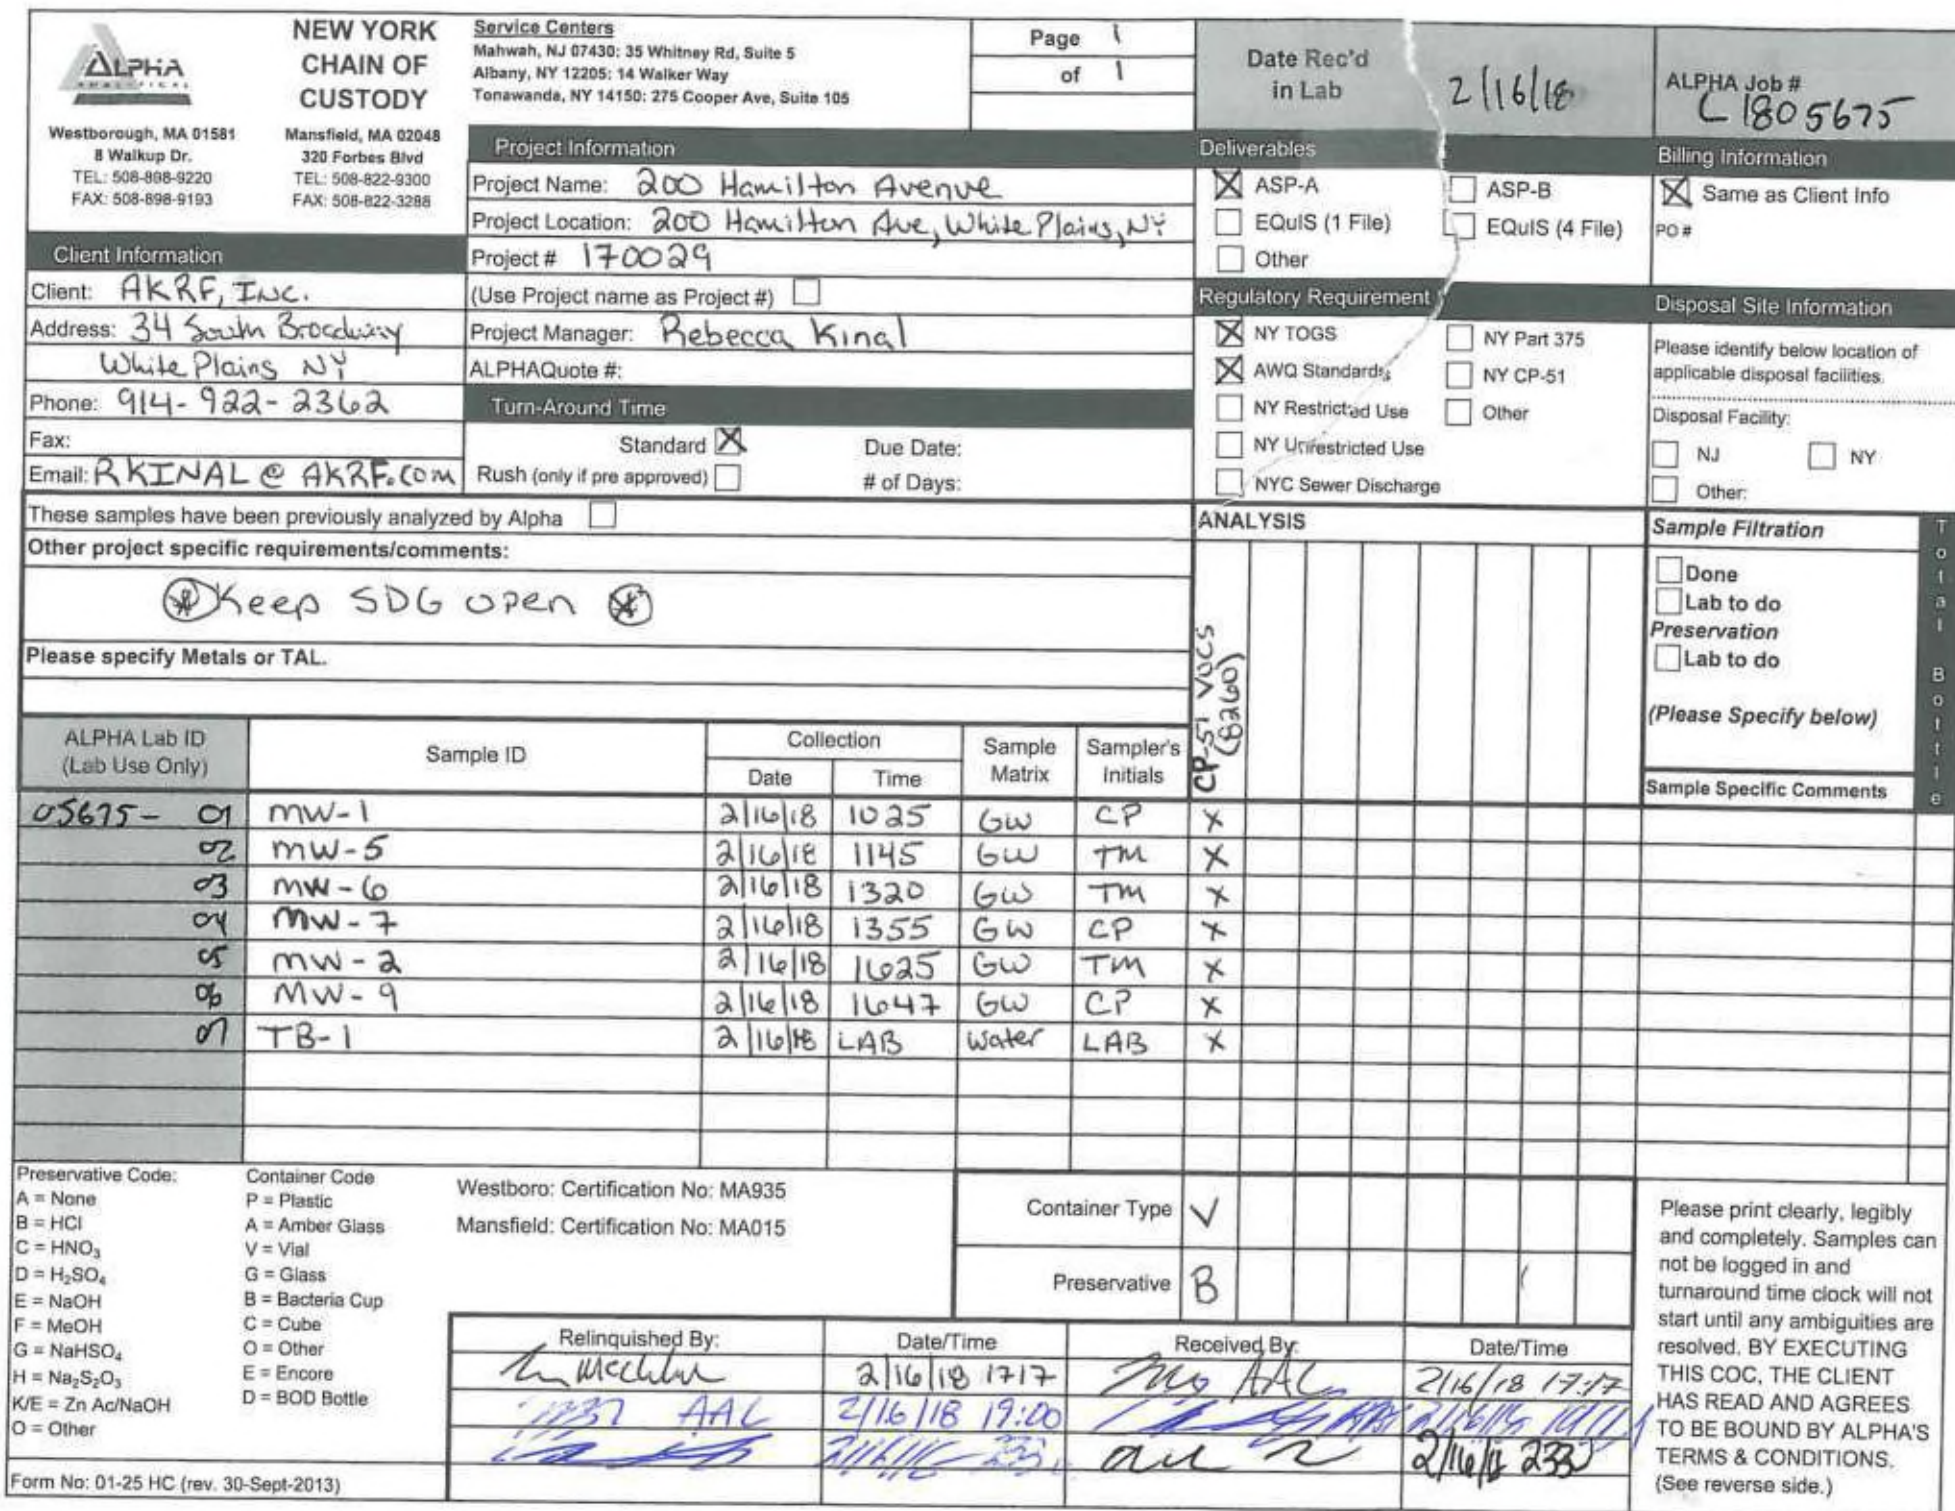 ALPHA
ANALYTICAL
Westborough, MA 01581
8 Walkup Dr.
TEL: 508-898-9220
FAX: 508-898-9193
NEW YORK
CHAIN OF
CUSTODY
Mansfield, MA 02048
320 Forbes Blvd
TEL: 508-822-9300
FAX: 508-822-3288
Service Centers
Mahwah, NJ 07430: 35 Whitney Rd, Suite 5
Albany, NY 12205: 14 Walker Way
Tonawanda, NY 14150: 275 Cooper Ave, Suite 105
Page 1
of 1
Date Rec'd
in Lab
2/16/18
ALPHA Job #
L1805675
Client Information
Client: AKRF, Inc.
Address: 34 South Broadway
White Plains NY
Phone: 914-922-2362
Fax:
Email: RKINAL@AKRF.com
Project Information
Project Name: 200 Hamilton Avenue
Project Location: 200 Hamilton Ave, White Plains, NY
Project # 170029
(Use Project name as Project #)
Project Manager: Rebecca Kinal
ALPHAQuote #:
Turn-Around Time
Standard X Due Date:
Rush (only if pre approved) # of Days:
Deliverables
X ASP-A ASP-B
EQuIS (1 File) EQuIS (4 File)
Other
Regulatory Requirement
X NY TOGS NY Part 375
X AWQ Standards NY CP-51
NY Restricted Use Other
NY Unrestricted Use
NYC Sewer Discharge
Billing Information
X Same as Client Info
PO #
Disposal Site Information
Please identify below location of
applicable disposal facilities.
Disposal Facility:
NJ NY
Other:
These samples have been previously analyzed by Alpha
Other project specific requirements/comments:
* Keep SDG open *
Please specify Metals or TAL.
ANALYSIS
CP-51 VOCs
(8260)
Sample Filtration
Done
Lab to do
Preservation
Lab to do
(Please Specify below)
Total Bottle
ALPHA Lab ID
(Lab Use Only)
Sample ID
Collection
Date Time
Sample
Matrix
Sampler's
Initials
Sample Specific Comments
05675-01 MW-1 2/16/18 1025 GW CP X
02 MW-5 2/16/18 1145 GW TM X
03 MW-6 2/16/18 1320 GW TM X
04 MW-7 2/16/18 1355 GW CP X
05 MW-2 2/16/18 1625 GW TM X
06 MW-9 2/16/18 1647 GW CP X
07 TB-1 2/16/18 LAB Water LAB X
Preservative Code:
A = None
B = HCl
C = HNO₃
D = H₂SO₄
E = NaOH
F = MeOH
G = NaHSO₄
H = Na₂S₂O₃
K/E = Zn Ac/NaOH
O = Other
Container Code
P = Plastic
A = Amber Glass
V = Vial
G = Glass
B = Bacteria Cup
C = Cube
O = Other
E = Encore
D = BOD Bottle
Westboro: Certification No: MA935
Mansfield: Certification No: MA015
Container Type V
Preservative B
Relinquished By: Date/Time Received By: Date/Time
2/16/18 1717 AAL 2/16/18 17:17
AAL 2/16/18 19:00
2/16/18
Please print clearly, legibly
and completely. Samples can
not be logged in and
turnaround time clock will not
start until any ambiguities are
resolved. BY EXECUTING
THIS COC, THE CLIENT
HAS READ AND AGREES
TO BE BOUND BY ALPHA'S
TERMS & CONDITIONS.
(See reverse side.)
Form No: 01-25 HC (rev. 30-Sept-2013)